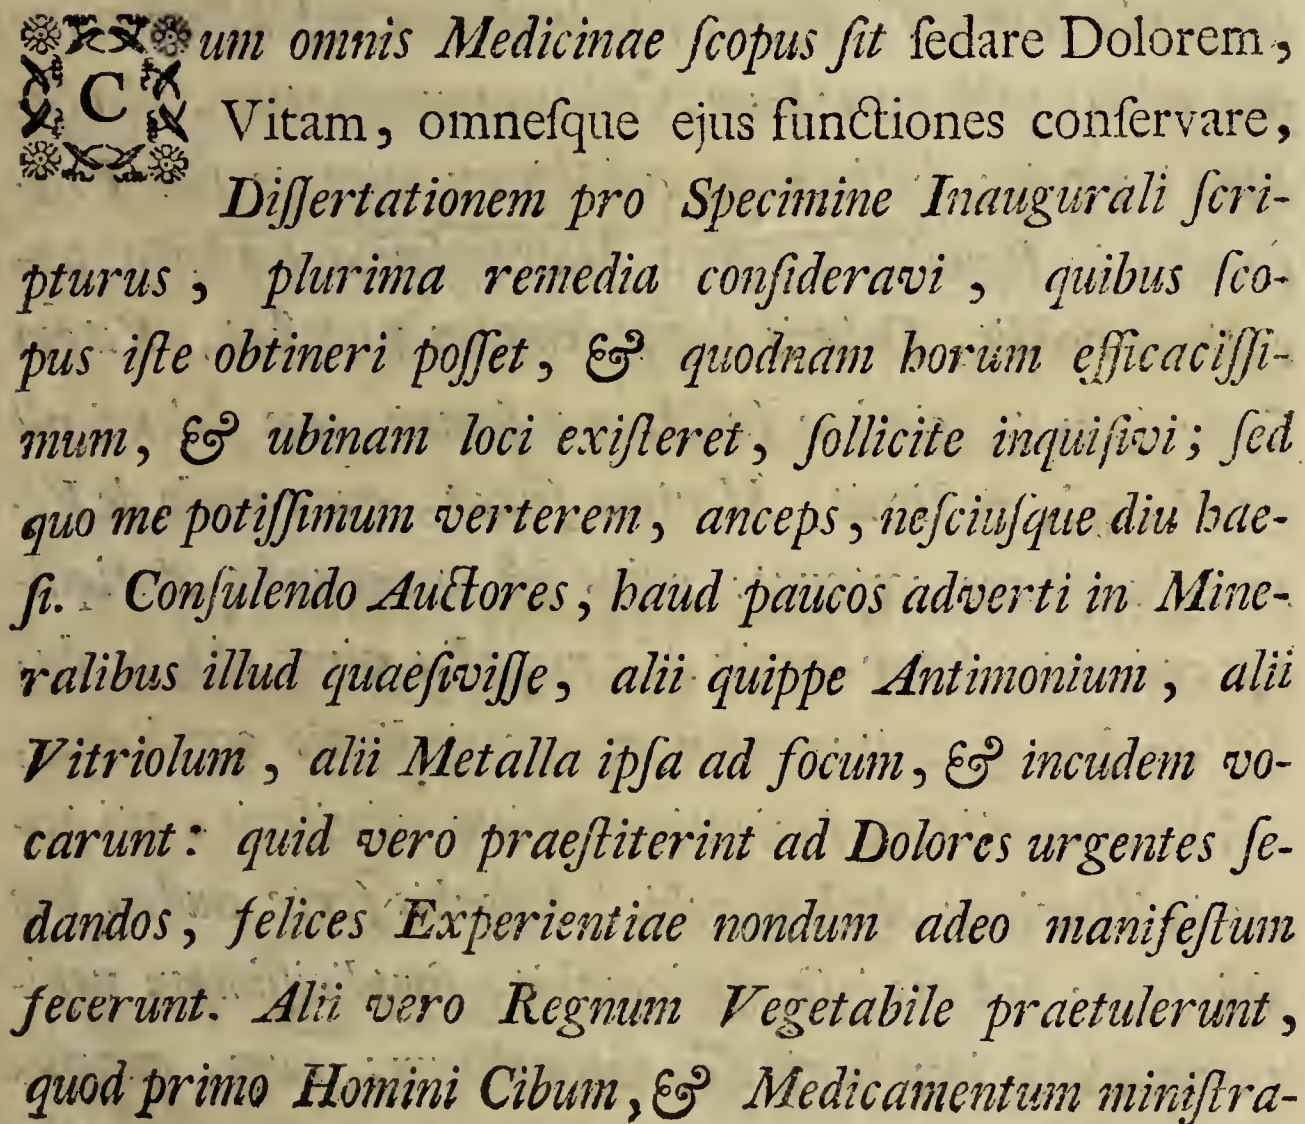 Cum omnis Medicinae ſcopus ſit ſedare Dolorem,
Vitam, omneſque ejus functiones conſervare,
Diſſertationem pro Specimine Inaugurali ſcri-
pturus, plurima remedia conſideravi, quibus ſco-
pus iſte obtineri poſſet, & quodnam horum efficaciſſi-
mum, & ubinam loci exiſteret, ſollicite inquiſivi; ſed
quo me potiſſimum verterem, anceps, neſciuſque diu hae-
ſi. Conſulendo Auctores, haud paucos adverti in Mine-
ralibus illud quaeſiviſſe, alii quippe Antimonium, alii
Vitriolum, alii Metalla ipſa ad focum, & incudem vo-
carunt: quid vero praeſtiterint ad Dolores urgentes ſe-
dandos, felices Experientiae nondum adeo manifeſtum
fecerunt. Alii vero Regnum Vegetabile praetulerunt,
quod primo Homini Cibum, & Medicamentum miniſtra-